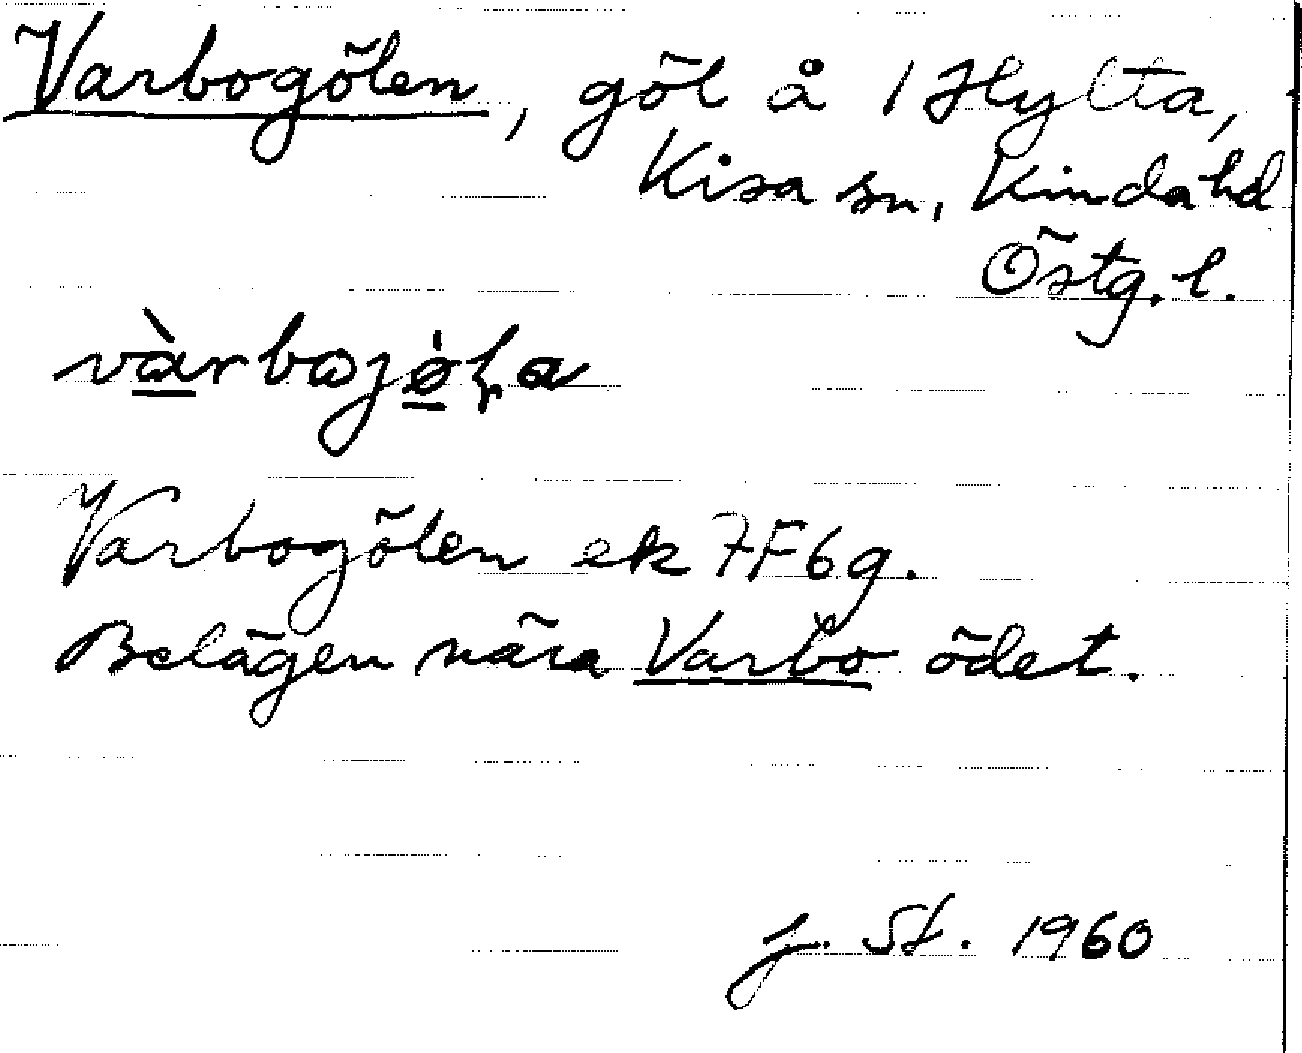 Varbogölen, göl å 1 Hylta,
Kisa sn, Kinda hd
Östg. l.
Varbogölen ek 7F6g.
Belägen nära Varbo ödet.
J. St. 1960